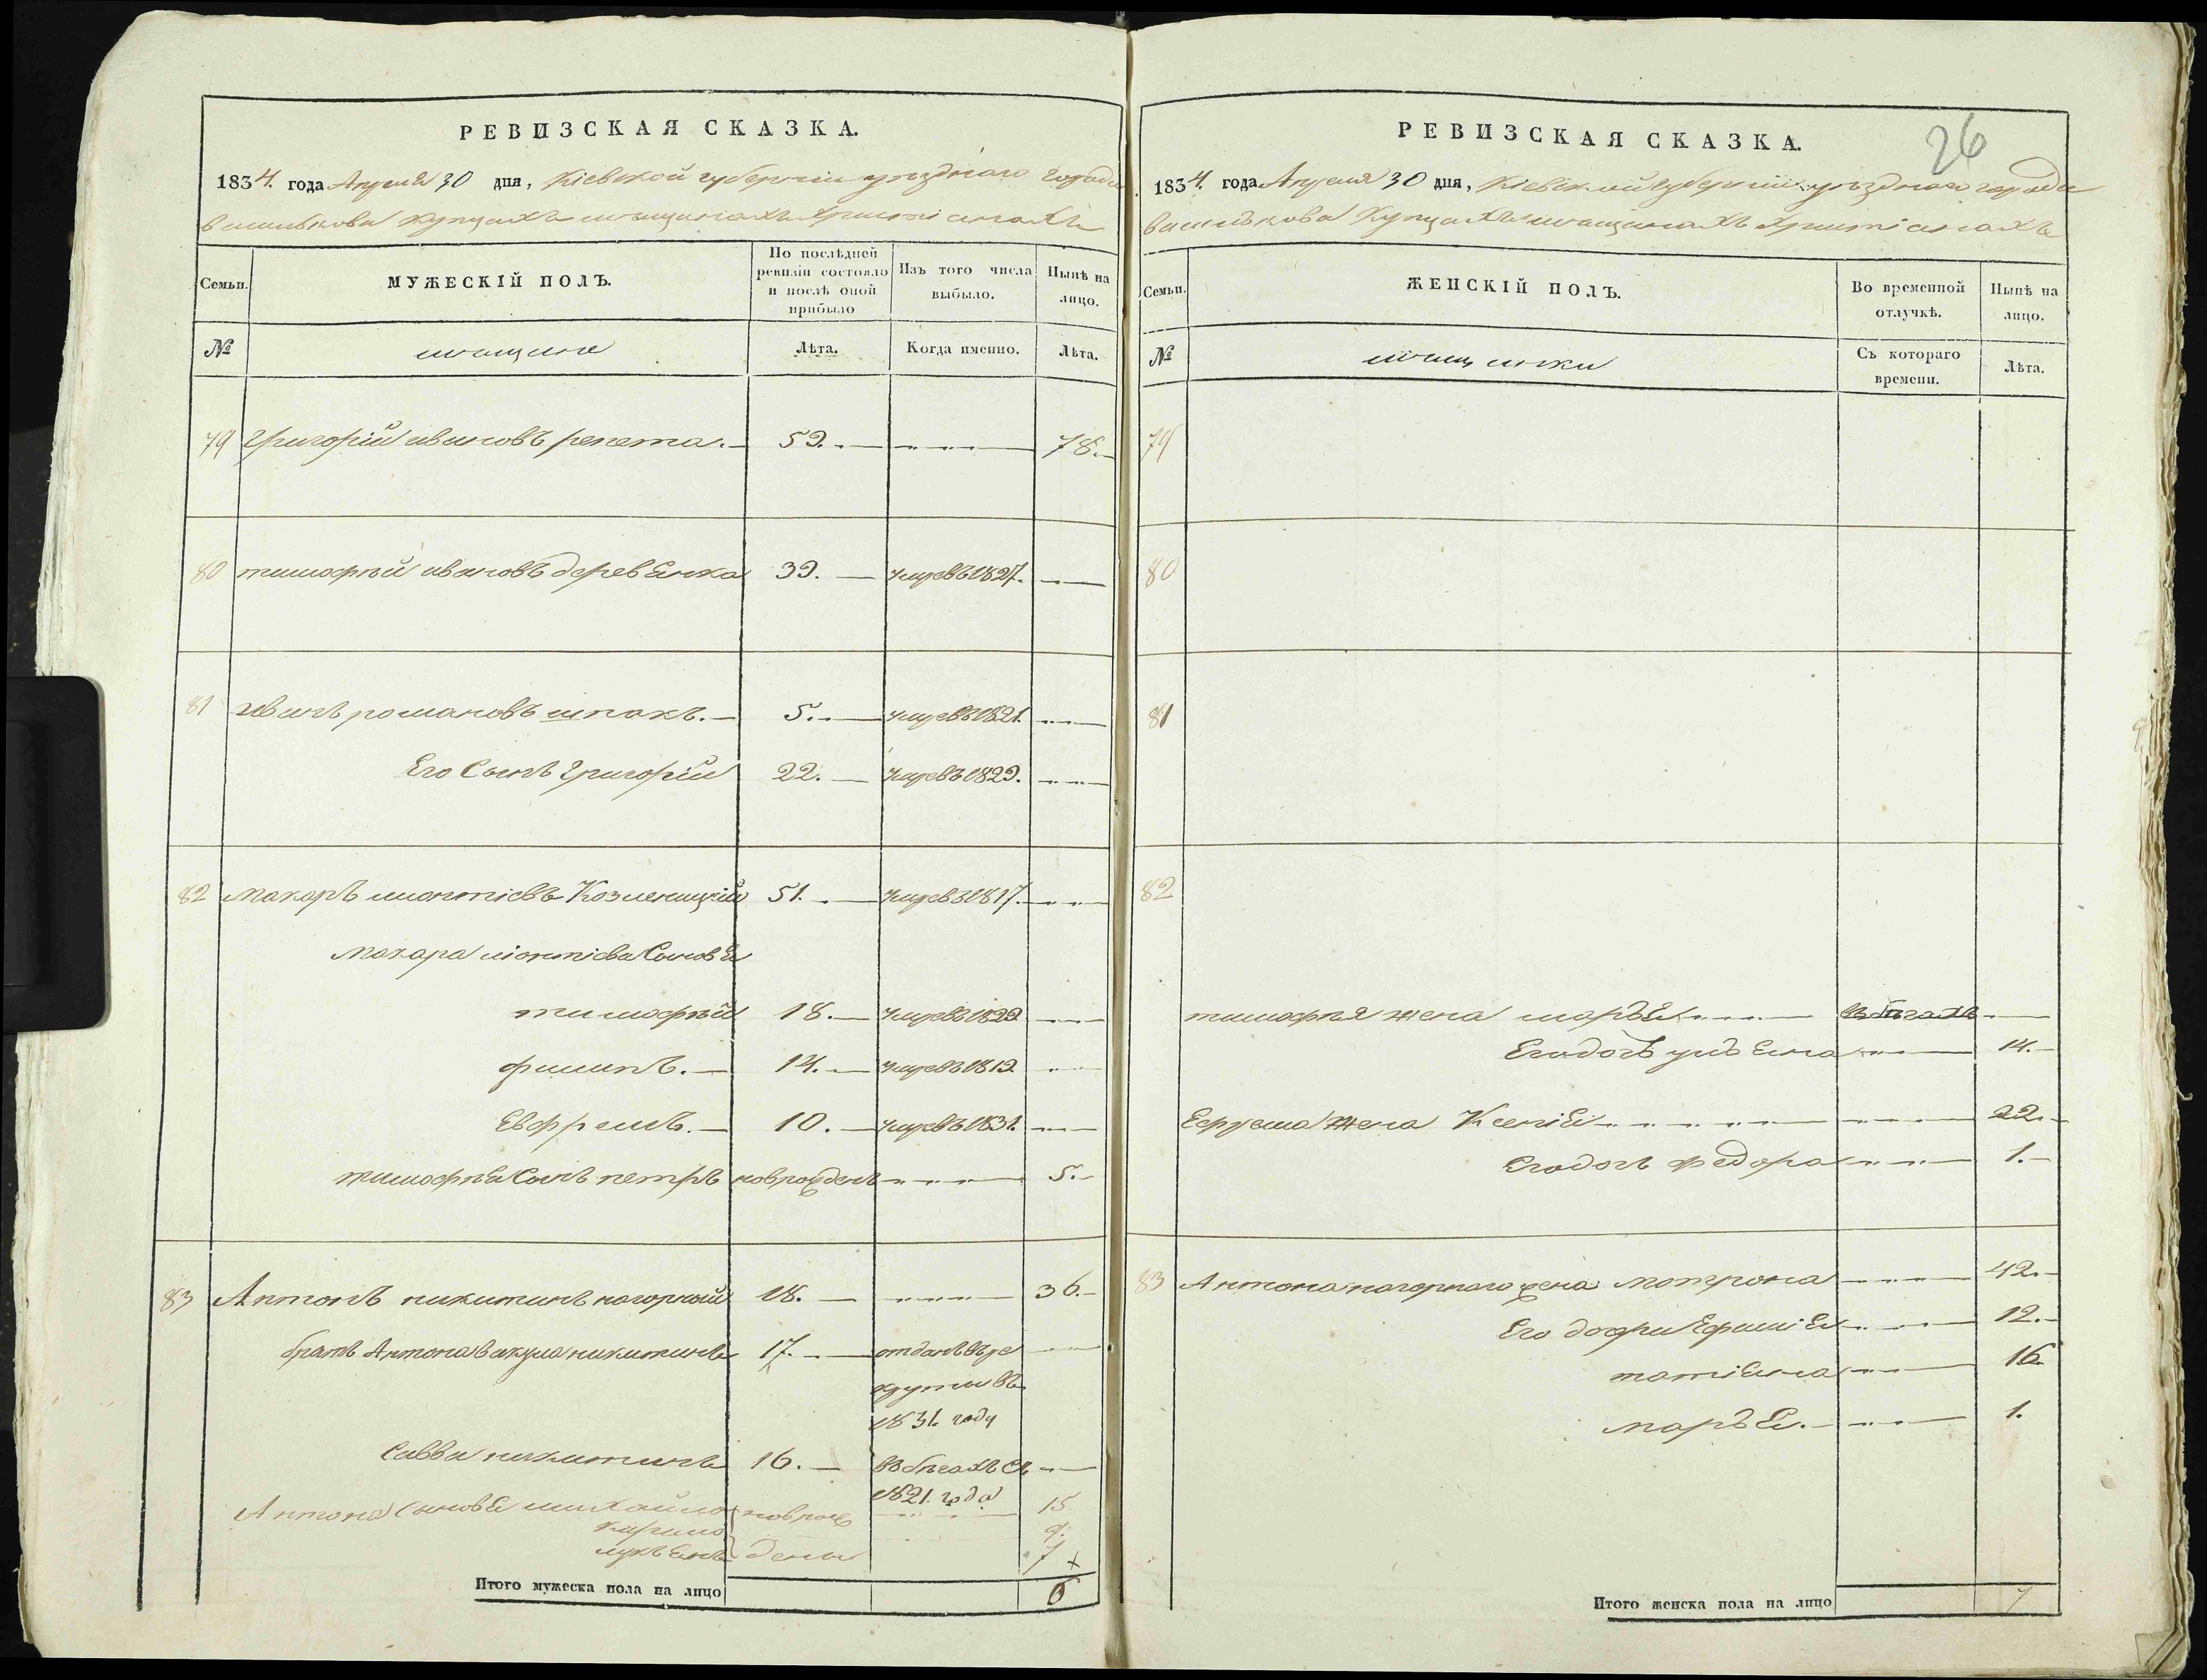 РЕВИЗСКАЯ СКАЗКА.
1834. года Апреля 30 дня, Кіевской губерніи уезднаго города
василькова купцахъ мещанахъ християнахъ
Семьи.
МУЖЕСКІЙ ПОЛЪ.
По послѣдней ревизіи состояло и послѣ оной прибыло
Изъ того числа выбыло.
Нынѣ на лицо.
№
мещане
Лѣта.
Когда именно.
Лѣта.
79 Григорій ивановъ репета. 59. 78.
80 тимофей ивановъ деревянка 39. умре въ 1827.
81 иванъ романовъ шпакъ. 5. умре въ 1821.
Его Сынъ Григорій 22. умре въ 1829.
82 Макаръ леонтіевъ 51. умре въ 1817.
Макара леонтіева Сыновя
тимофей 18. умре въ 1829
филипъ. 14. умре въ 1819
Евфремъ. 10. умре въ 1831.
тимофея Сынъ петръ новрожденъ 5.
83 Антонъ никитинъ нагорный 18. 36.
братъ Антона вакула никитинъ 17. отданъ въ ре
круты въ
1831. году
Савва никитинъ 16. въ бегахъ съ
1821. года
Антона Сыновя михайло новрож 15
кирило 9.
лукъянъ дены 7
Итого мужеска пола на лицо 6
26
РЕВИЗСКАЯ СКАЗКА.
1834. года Апреля 30 дня, Кіевской губерніи уезднаго города
василькова Купцахъ мещанахъ християнахъ
Семьи.
ЖЕНСКІЙ ПОЛЪ.
Во временной отлучкѣ.
Нынѣ на лицо.
№
мещанки
Съ котораго времени.
Лѣта.
79
80
81
82
тимофея жена маръя въ бегахъ
Егодочъ улъяна 14.
Ефрема жена Ксенія 22.
Егодочъ федора 1.
83 Антона нагорнаго жена Мотрона 42.
Его дочри Ефимія 12.
татіяна 16.
маръя. 1.
Итого женска пола на лицо 7